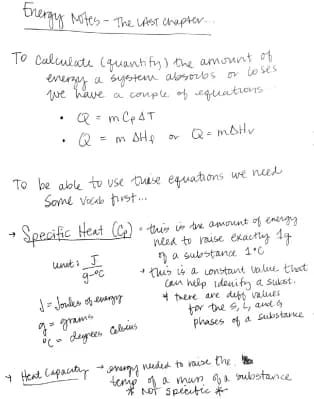 Energy Notes - The LAST chapter...
To calculate (quantify) the amount of
energy a system absorbs or loses
we have a couple of equations
• Q = mCpΔT
• Q = mΔHf or Q = mΔHv
To be able to use these equations we need
some vocab first...
→ Specific Heat (Cp) • this is the amount of energy
need to raise exactly 1g
of a substance 1°C
unit: J
g·°C
• this is a constant value that
can help identify a subst.
* there are diff values
for the S, L, and G
phases of a substance
J = Joules of energy
g = grams
°C = degrees Celsius
→ Heat Capacity → energy needed to raise the
temp of a mass of a substance
* NOT specific *